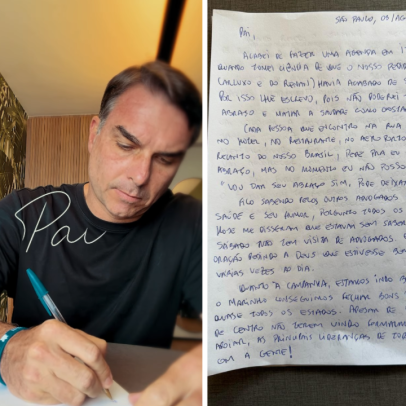 Pai
SÃO PAULO, 01/AGO
PAI,
ACABEI DE FAZER UMA AGENDA EM
QUANDO TOMEI CIÊNCIA DE QUE O NOSSO PEDIDO
CARLUXO E DO RENAN) HAVIA ACABADO DE S
POR ISSO LHE ESCREVO, POIS NÃO PODEREI
ABRAÇO E MATAR A SAUDADE COMO GOSTA
CADA PESSOA QUE ENCONTRO NA RUA
NO HOTEL, NO RESTAURANTE, NO AEROPORTO
RECANTO DO NOSSO BRASIL, PEDE PRA EU
ABRAÇO, MAS NO MOMENTO EU NÃO POSSO
"VOU DAR SEU ABRAÇO SIM, PODE DEIXA
FICO SABENDO PELOS OUTROS ADVOGADOS
SAÚDE E SEU HUMOR, PERGUNTO TODOS OS
HOJE ME DISSERAM QUE ESTAVA SEM SABER
SÁBADO NÃO TEM VISITA DE ADVOGADOS.
ORAÇÃO PEDINDO A DEUS QUE ESTIVESSE
VÁRIAS VEZES AO DIA.
QUANTO À CAMPANHA, ESTAMOS INDO B
O MARINHO CONSEGUIMOS FECHAR BONS
QUASE TODOS OS ESTADOS. APESAR DE
DE CENTRO NÃO TEREM VINDO FORMALM
APOIAR, AS PRINCIPAIS LIDERANÇAS DE TOD
COM A GENTE!